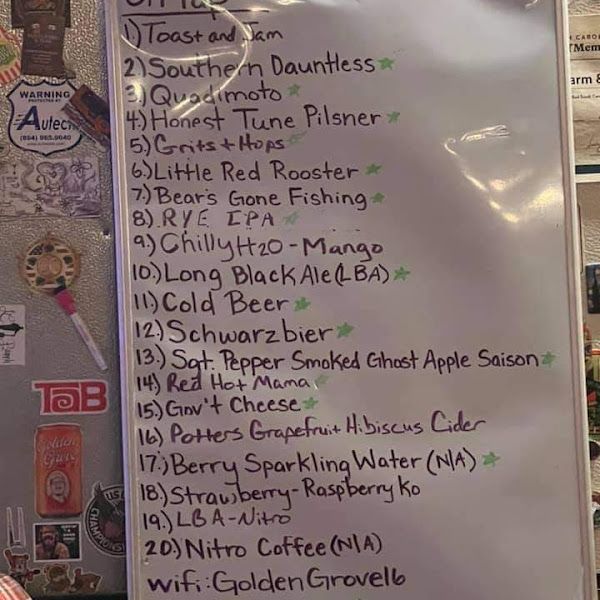 On Tap
1.) Toast and Jam
2.) Southern Dauntless
3.) Quadimoto
4.) Honest Tune Pilsner
5.) Grits + Hops
6.) Little Red Rooster
7.) Bear's Gone Fishing
8.) RYE IPA
9.) Chilly H20 - Mango
10.) Long Black Ale (LBA)
11.) Cold Beer
12.) Schwarzbier
13.) Sgt. Pepper Smoked Ghost Apple Saison
14.) Red Hot Mama
15.) Gov't Cheese
16.) Potters Grapefruit Hibiscus Cider
17.) Berry Sparkling Water (N/A)
18.) Strawberry-Raspberry Ko
19.) LBA-Nitro
20.) Nitro Coffee (N/A)
wifi: GoldenGrove16
WARNING
PROTECTED BY
Autech
(864) 965.9040
TAB
Golden
Grove
US
CHAMPIONSHIP
CARO
Mem
arm &